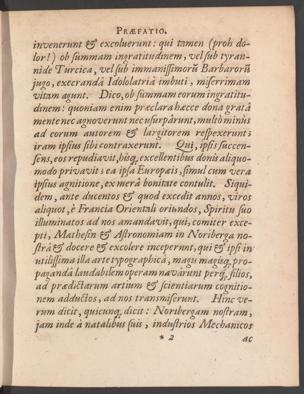 PRÆFATIO.
invenerunt & excoluerunt: qui tamen (proh do-
lor!) ob summam ingratitudinem, vel sub tyran-
nide Turcica, vel sub immanissimorũ Barbarorũ
jugo, execrandâ Idololatriâ imbuti, miserrimam
vitam agunt. Dico, ob summam eorum ingratitu-
dinem: quoniam enim præclara hæcce dona gratâ
mente nec agnoverunt nec usurpârunt, multò minùs
ad eorum autorem & largitorem respexerunt;
iram ipsius sibi contraxerunt. Qui, ipsis succen-
sens, eos repudiavit, hisq; excellentibus donis aliquo-
modo privavit: ea ipsa Europæis, simul cum vera
ipsius agnitione, ex merâ bonitate contulit. Siqui-
dem, ante ducentos & quod excedit annos, viros
aliquot, è Francia Orientali oriundos, Spiritu suo
illuminatos ad nos amandavit, qui, comiter exce-
pti, Mathesin & Astronomiam in Noriberga no-
strâ & docere & excolere inceperunt, qui & ipsi in
utilissima illa arte typographica, magis magisq; pro-
pagandâ laudabilem operam navârunt perq; filios,
ad prædictarum artium & scientiarum cognitio-
nem adductos, ad nos transmiserunt. Hinc ve-
rum dicit, quicunq; dicit: Noribergam nostram,
jam inde à natalibus suis, industrios Mechanicos
* 2 ac